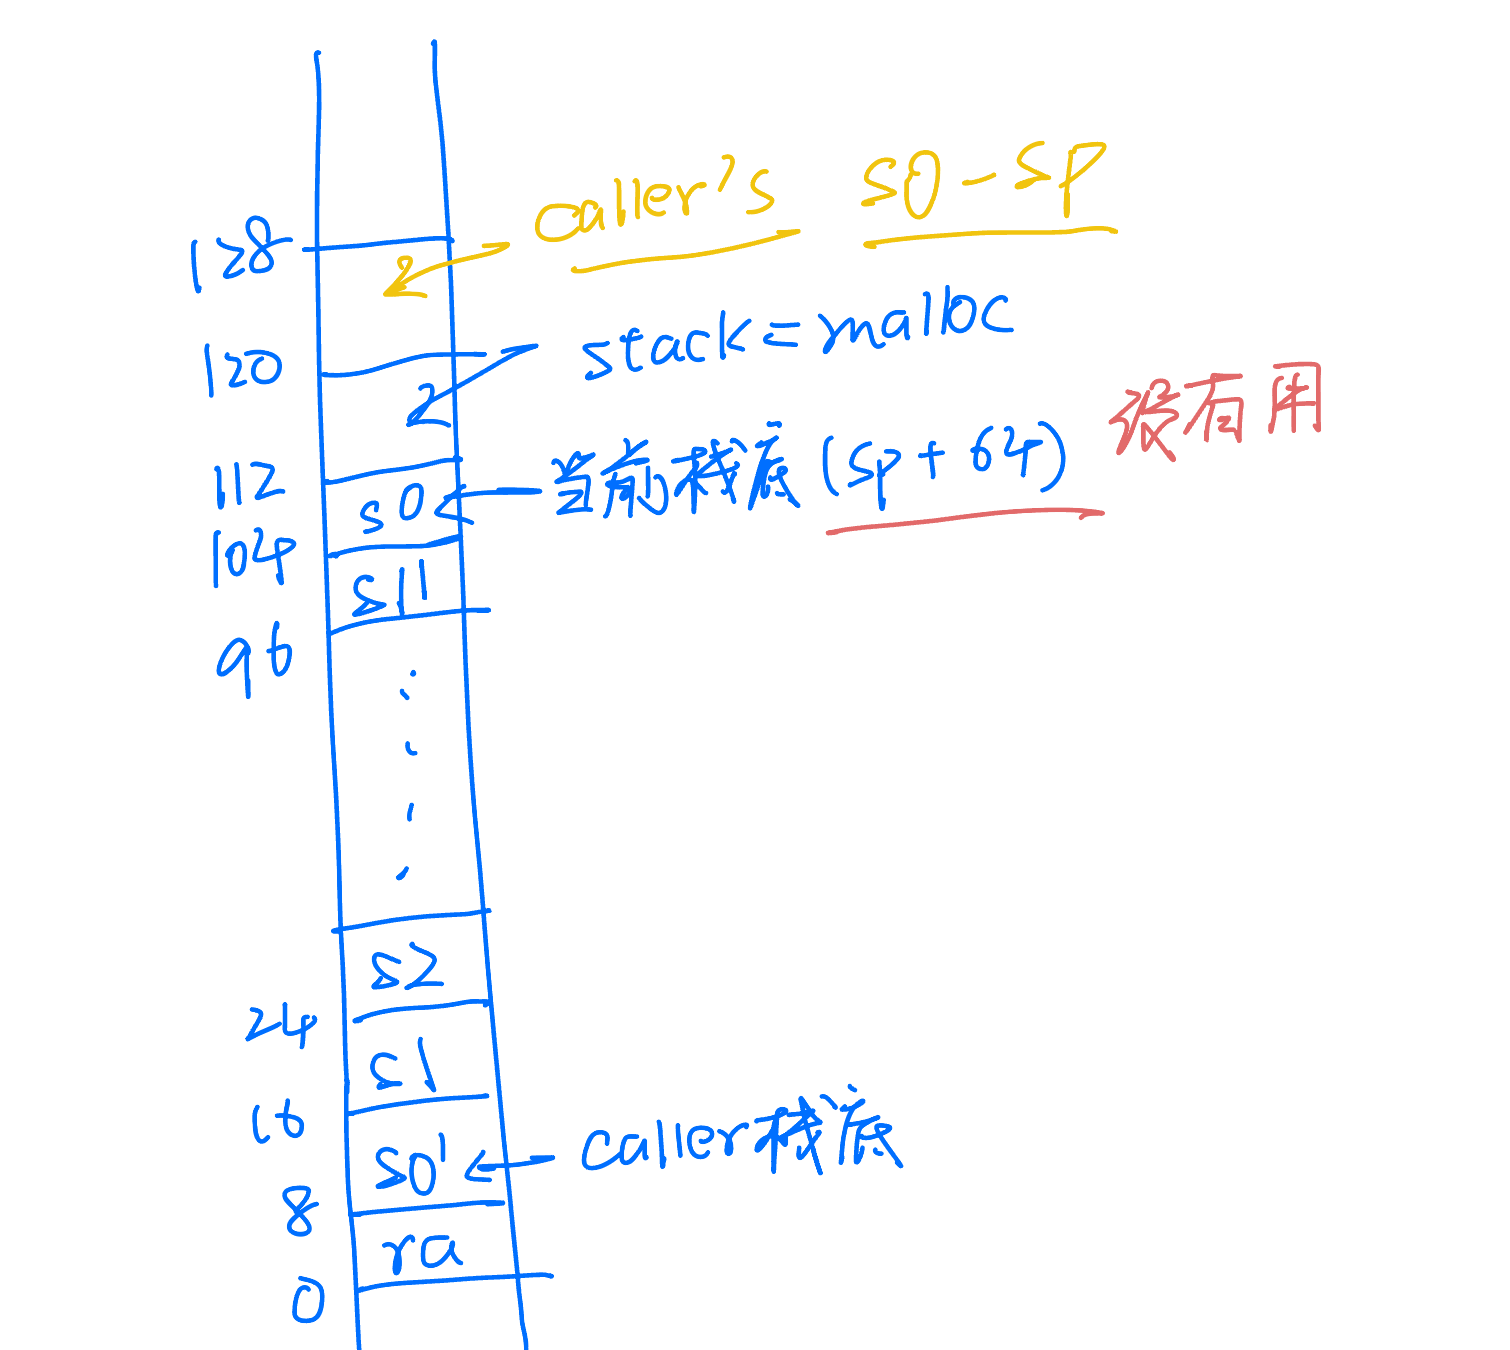 caller's s0-sp
128
2
stack=malloc
120
2
没有用
当前栈底(sp+64)
112
s0
104
s11
96
s2
24
s1
16
caller栈底
s0'
8
ra
0